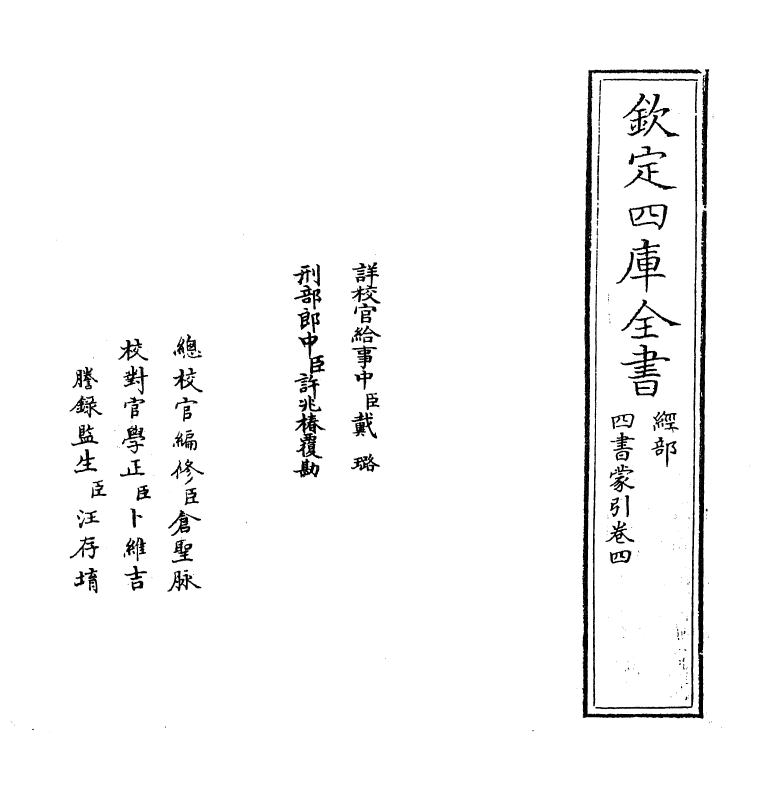 欽定四庫全書
經部
四書蒙引卷四
詳校官給事中臣戴璐
刑部郎中臣許兆椿覆勘
總校官編修臣倉聖脉
校對官學正臣卜維吉
謄錄監生臣汪存堉